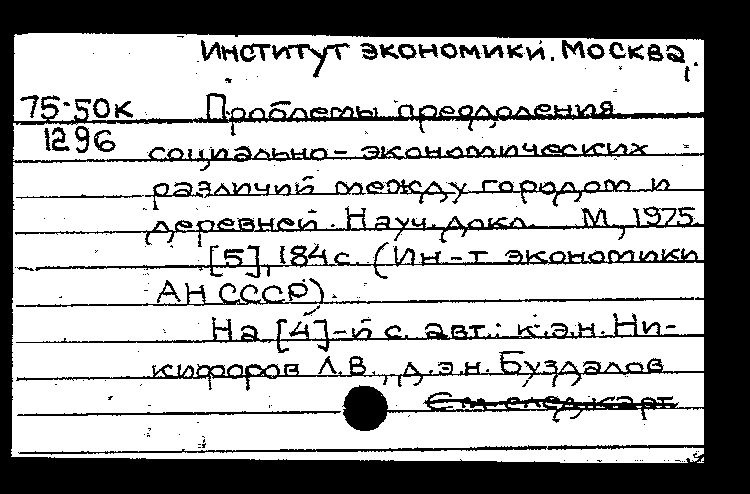 Институт экономики. Москва.
75-50к Проблемы преодоления
1296 социально-экономических
различий между городом и
деревней. Науч. докл. М., 1975.
[5], 184 с. (Ин-т экономики
АН СССР).
На [4]-й с. авт.: к.э.н. Ни-
кифоров Л.В., д.э.н. Буздалов
См. след. карт.